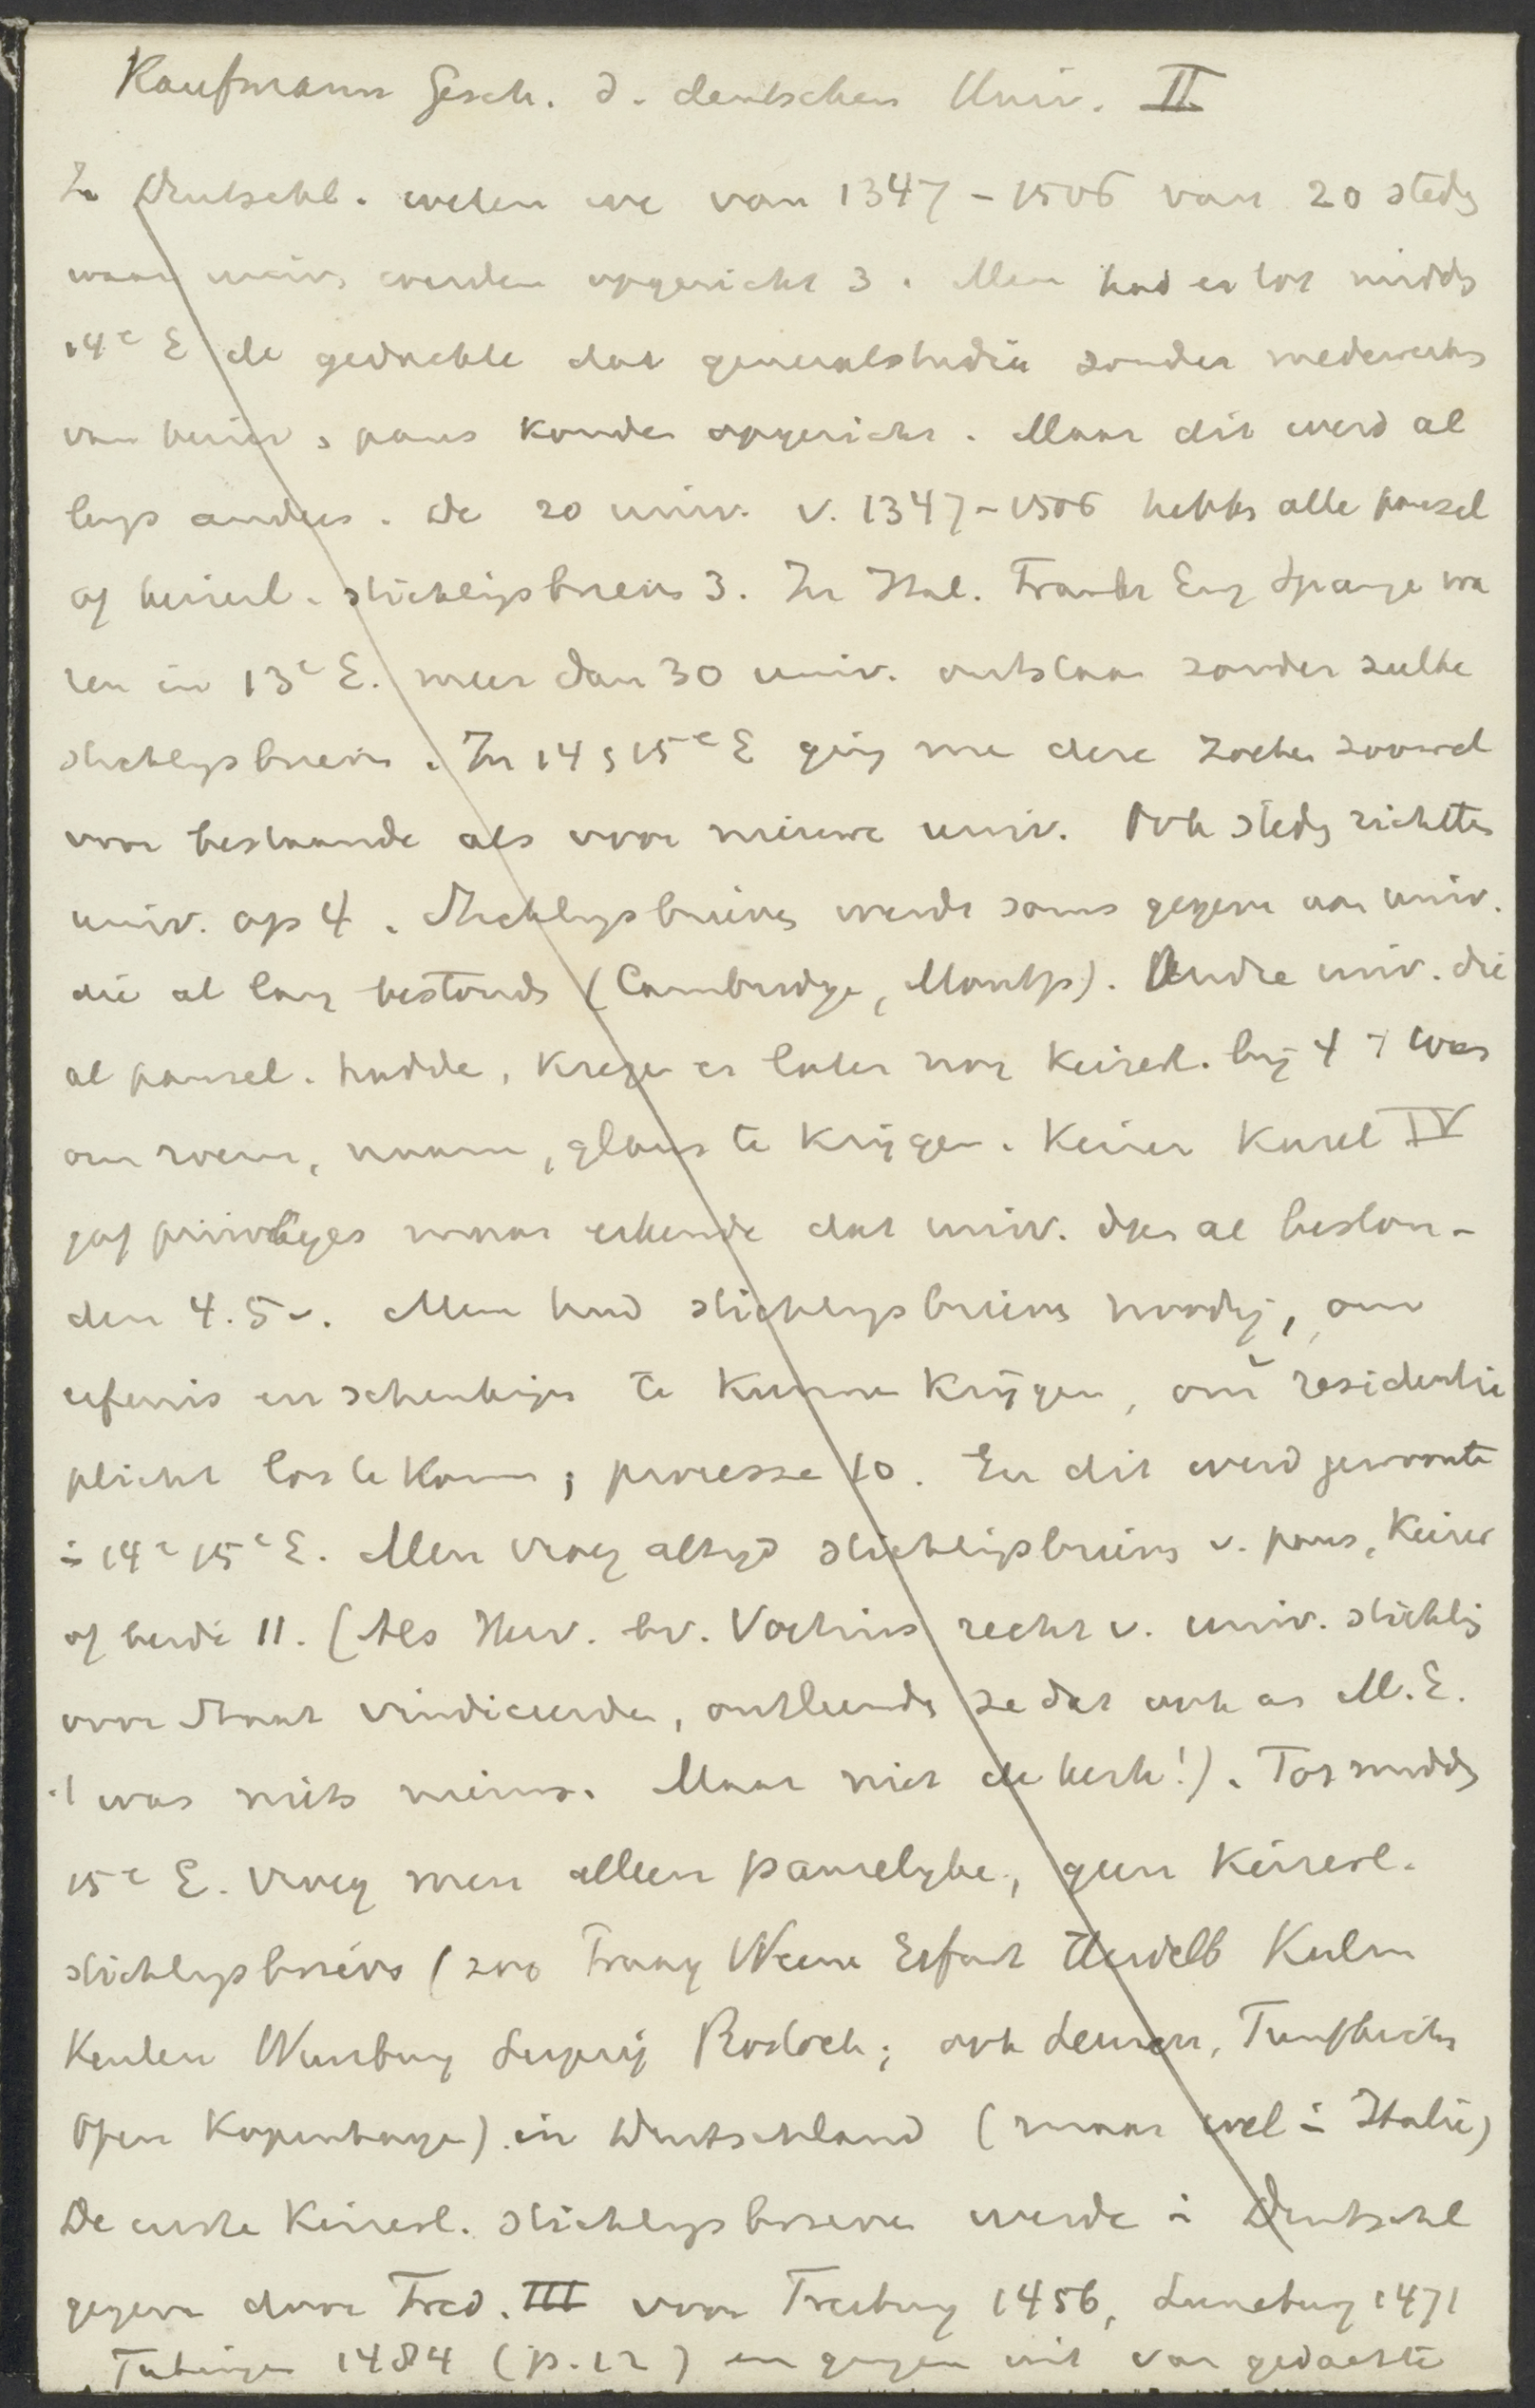 Kaufmann Gesch. d. deutschen Univ. II
In Deutschl. weten we van 1347-1506 van 20 stedn
waar univ. werden opgericht 3. Men had er tot midden
14e E de gedachte dat generalstudiën zonder medewerkg
van keizer, paus konden opgericht. Maar dit werd al
lengs anders. De 20 univ. v. 1347-1506 hebbn alle pausel
of keizerl. stichtingsbrieven 3. In Ital. Frankr Eng Spanje wa
ren in 13e E. meer dan 30 univ. ontstaan zonder zulke
stichtgsbrieven. In 14 en 15e E ging men deze zoeken zoowel
voor bestaande als voor nieuwe univ. Ook stedn richtten
univ. op 4. Stichtgsbrieven werden soms gegeven aan univ.
die al lang bestonden (Cambridge, Montp). Andre univ. die
al pausel. hadden, kregen er later nog keizerl. bij 4 't was
om roem, naam, glans te krijgen. Keizer Karel IV
gaf privileges maar erkende dat univ. dzer al beston-
den 4.5. Men had stichtgsbrieven noodig, om
erfenis en schenkingen te kunnen krijgen, om residentie
plicht los te komen, processe 10. En dit werd gewoonte
in 14e 15e E. Men vroeg altijd stichtingsbrieven v. paus, keizer
of beide 11. (Als Herv. bv. Voetius recht v. univ. stichtg
voor Staat vindiceerden, ontleenden ze dat ook aan M.E.
't was niets nieuws. Maar niet de kerk!). Tot midden
15e E. vroeg men alleen pauselijke, geen keizerl.
stichtgsbrieven (zoo Praag Weenen Erfurt Heidelb Kulm
Keulen Wurzburg Leipzig Rostock; ook Leuven, Funfkirchn
Ofen Kopenhagen) in Duitschland (maar wel in Italië)
De eerste keizerl. stichtgsbrieven werden in Duitschl
gegeven door Fred. III voor Freiburg 1456, Luneburg 1471
Tubingen 1484 (p. 12) en gingen uit van gedachte